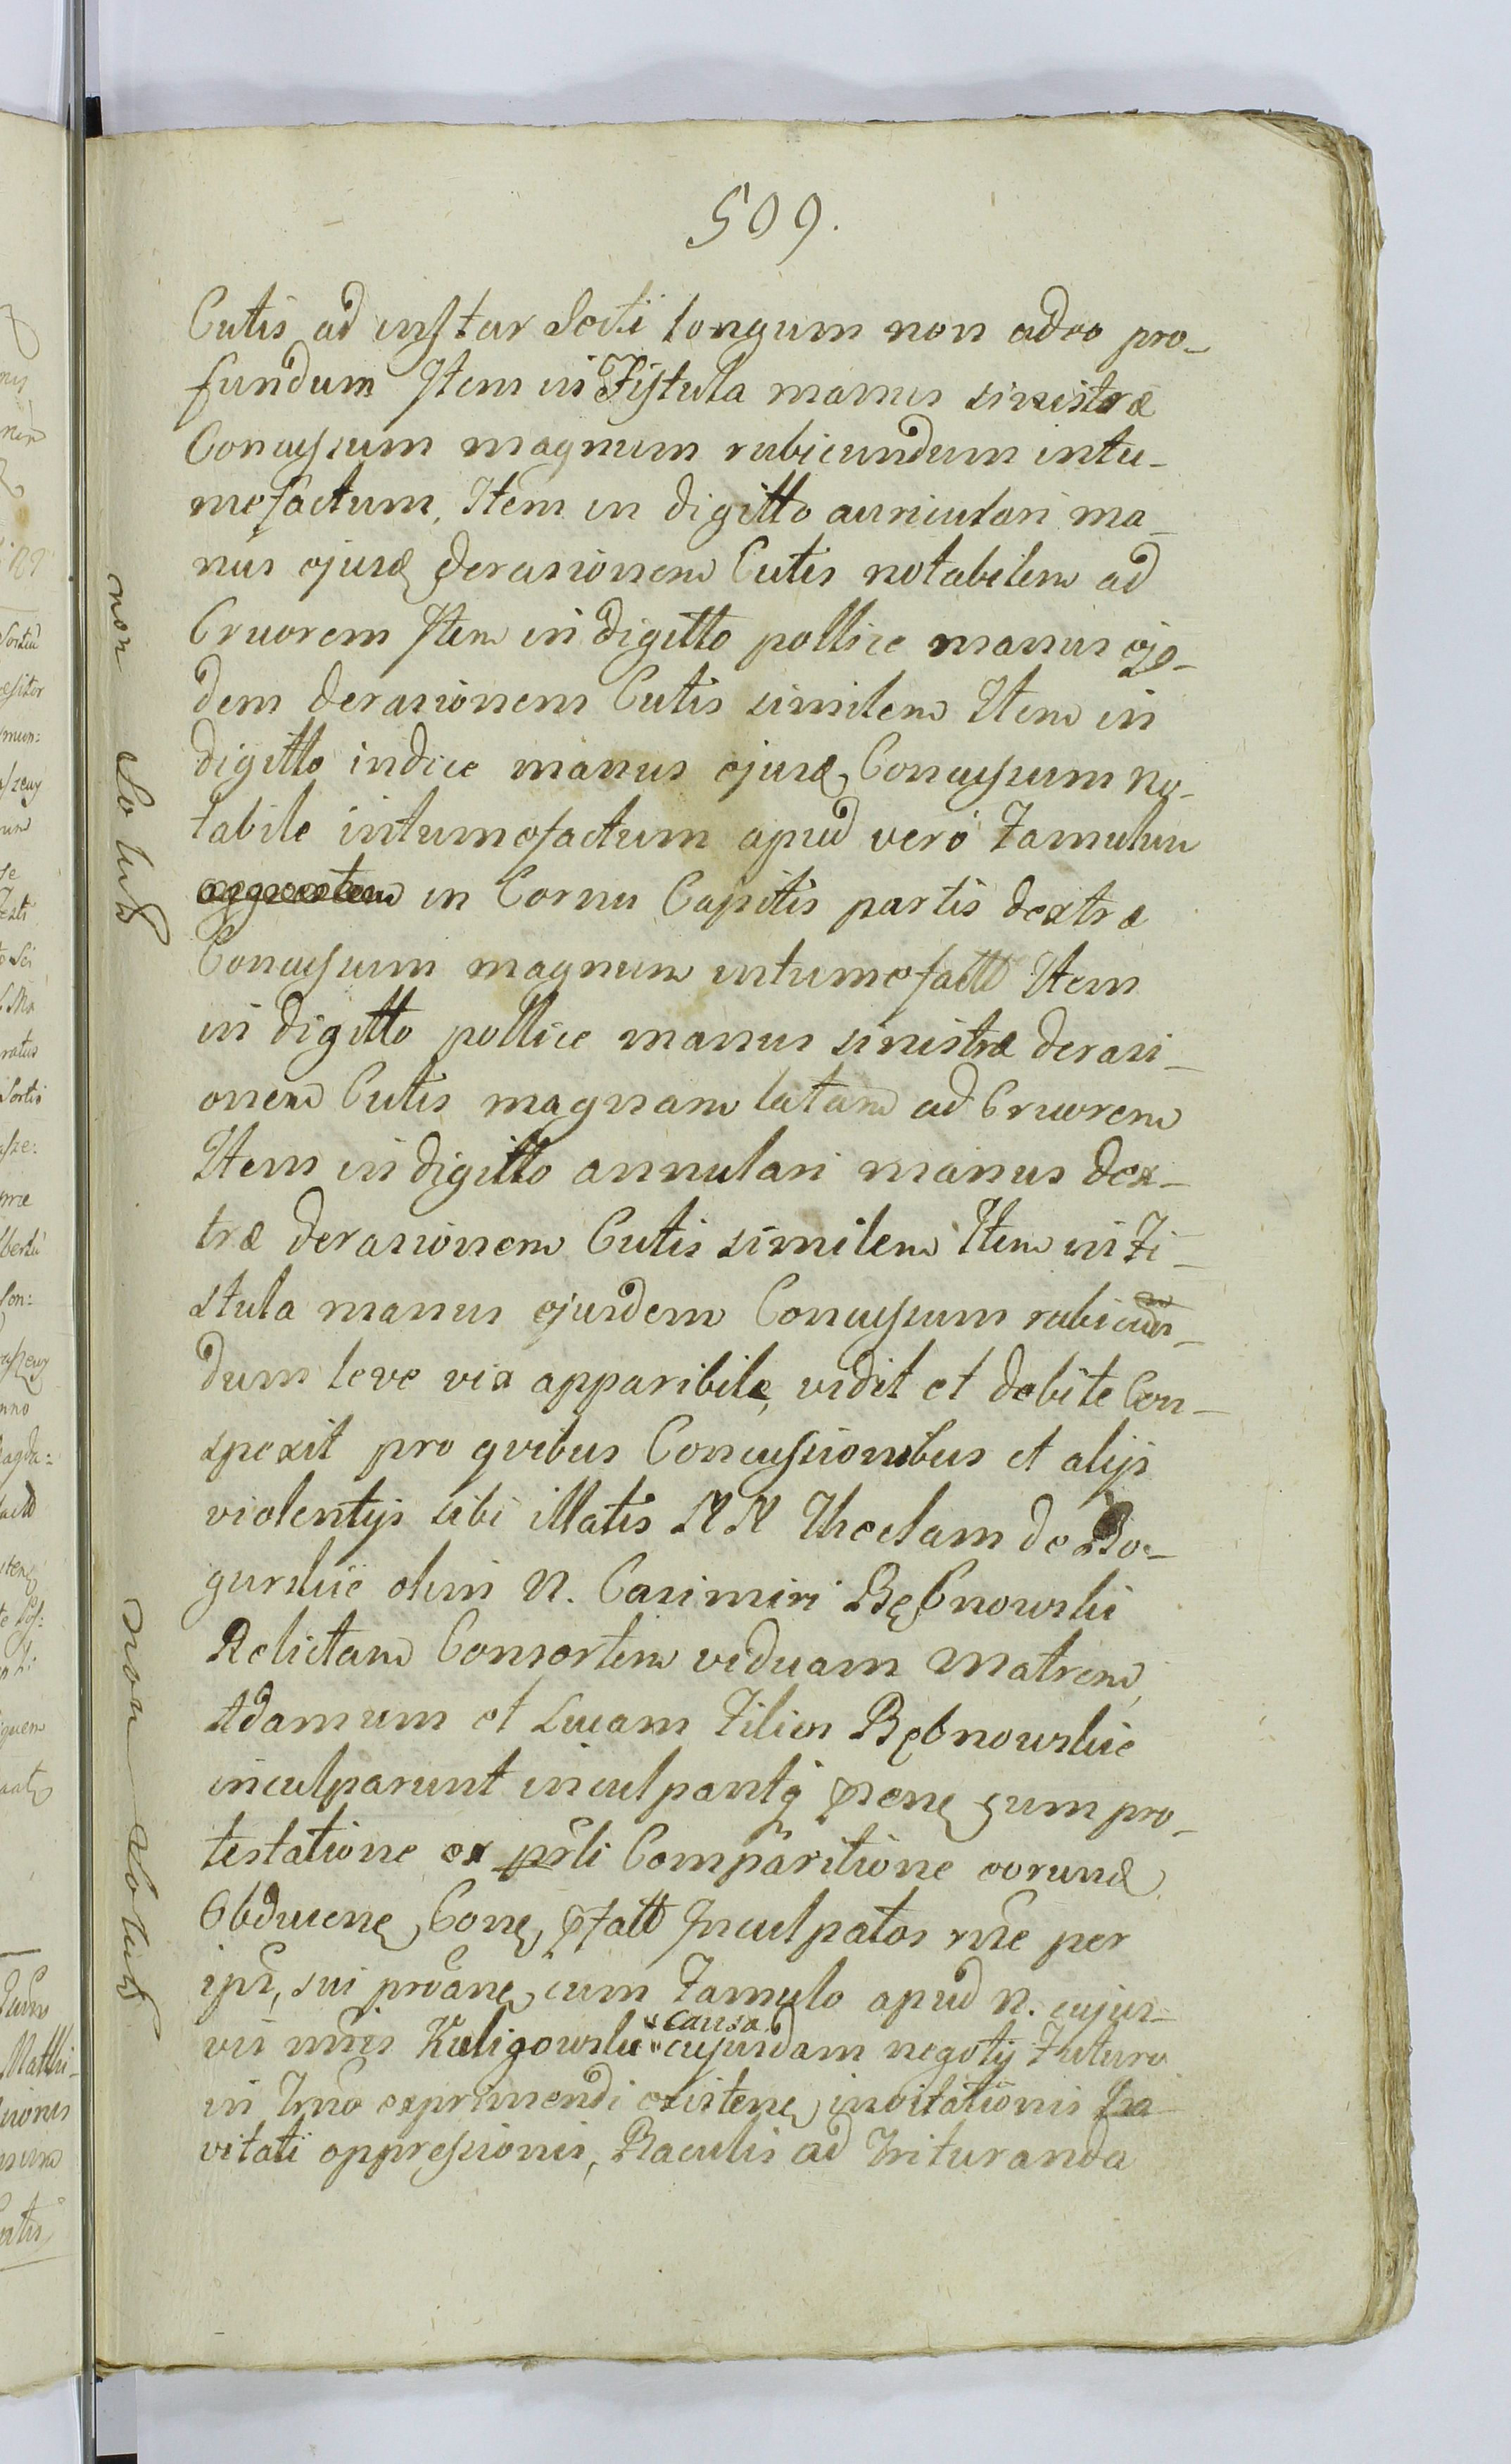 509.
Cutis ad instar Secti longum non adeo pro-
fundum Item in Fistula manus sinistræ
Concussum magnum rubicundum intu-
mefactum, Item in digitto auriculari ma-
nus ejusd derasionem Cutis notabilem ad
Cruorem Item in digitto pollice manus ejs-
dem derasionem Cutis similem Item in
digitto indice manus ejusd, Concussum no-
tabile intumefactum apud vero Famulum
in Cornu Capitis partis dextræ
Concussum magnum intumefactt Item
in digitto pollice manus sinistræ derasi-
onem Cutis magnam latam ad Cruorem
Item in digitto annulari manus dex-
træ derasionem Cutis similem Item in Fi-
stula manus ejusdem Concussum rubicun-
dum leve vix apparibile, vidit et debite Con-
spexit pro qvibus Concussionibus et alijs
violentijs sibi illatis NN Theclam de Bo-
gurskie olim N. Casimiri Rębnowski
Relictam Consortem viduam Matrem,
Adamum et Lucam Filios Rębnowskie
inculparunt inculpantq cum pro-
testatione ex pñti Comparitione eorund
Obducen, Con, Inculpatos rñe per
ips, sui cum Famulo apud N. cujus-
vis nñis Kuligowski causa cujusdam negotij Futuro
in Tmno exprimendi existen, invitationis
vitati oppressionis, Baculis ad Trituranda
non solutt
non solutt